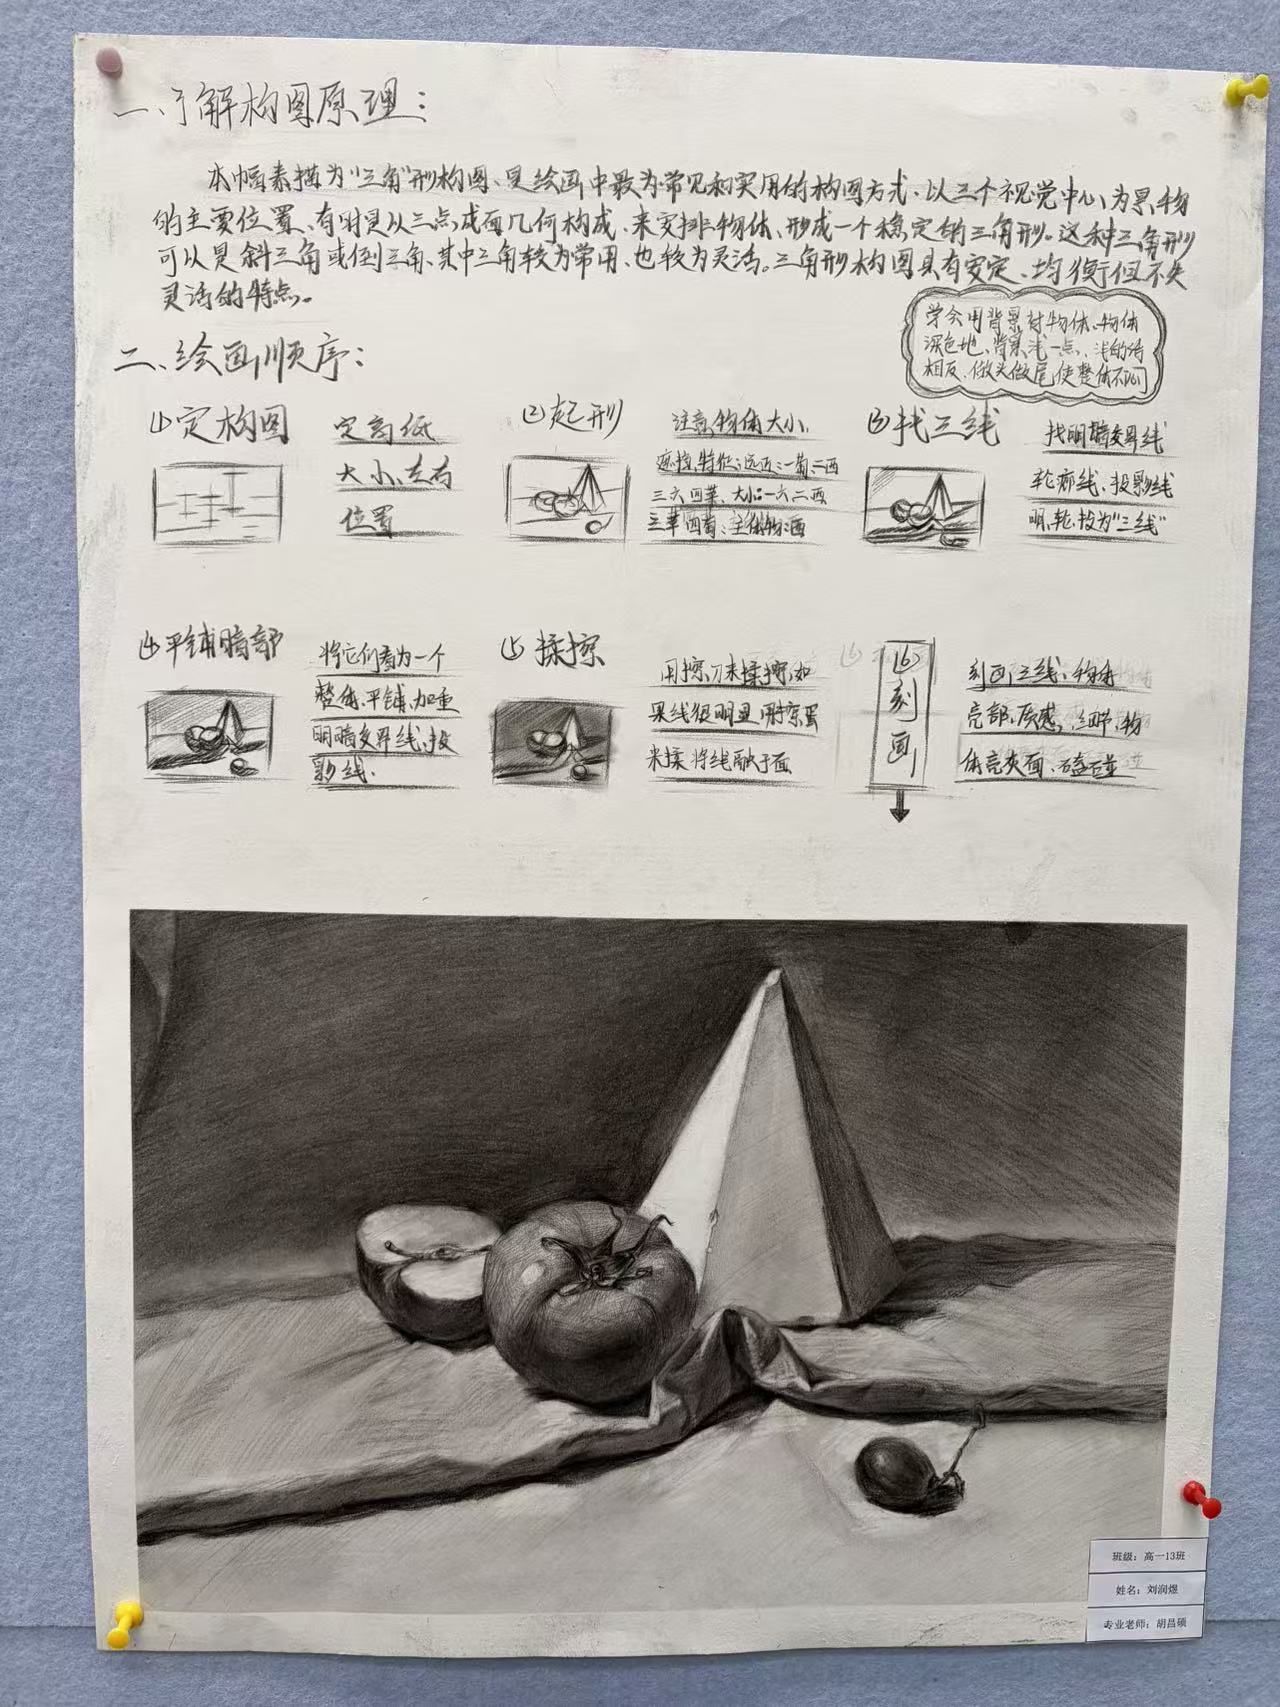 一、了解构图原理：
本幅素描为“三角”形构图、是绘画中最为常见和实用的构图方式、以三个视觉中心为景物
的主要位置、有时是从三点成面几何构成、来安排物体、形成一个稳定的三角形。这种三角形
可以是斜三角或倒三角、其中三角较为常用、也较为灵活。三角形构图具有安定、均衡但不失
灵活的特点。
学会用背景衬物体、物体
深色地、背景浅一点、浅的话
相反、做头做尾使整体不
二、绘画顺序：
①定构图
定高低
大小、左右
位置
②起形
注意物体大小、
遮挡、特征；远近：一葡二西
三六四苹、大小：一六、二西
三苹四葡；主体物：西
③找三线
找明暗交界线
轮廓线、投影线
明、轮、投为“三线”
④平铺暗部
将它们看为一个
整体、平铺、加重
明暗交界线、投
影线.
⑤揉擦
用擦刀来揉擦、如
果线很明显用擦蛋
来揉将线融于面
⑥刻画
刻画三线、物体
亮部、质感、细节、物
体亮灰面、磕碰
班级：高一13班
姓名：刘润煜
专业老师：胡昌硕